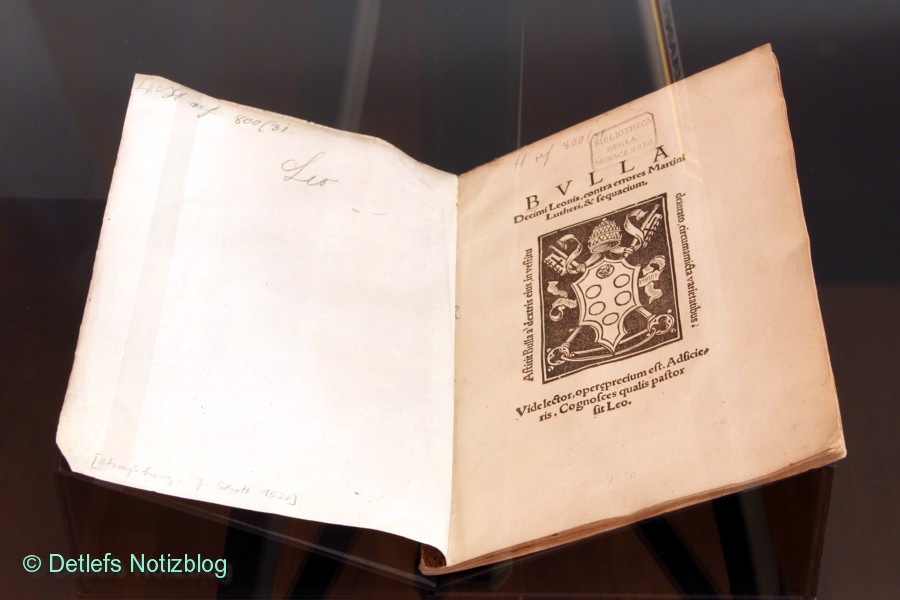 800/31.
Leo
H ref 800/31
BIBLIOTHECA
REGIA
MONACENSIS
BVLLA
Decimi Leonis, contra errores Martini
Lutheri, & sequacium.
Astitit Bulla a dextris eius, in vestitu
deaurato, circumamicta varietatibus.
Vide lector, operęprecium est. Adficie-
ris. Cognosces qualis pastor
sit Leo.
[Strassburg, J. Schott 1520]
© Detlefs Notizblog